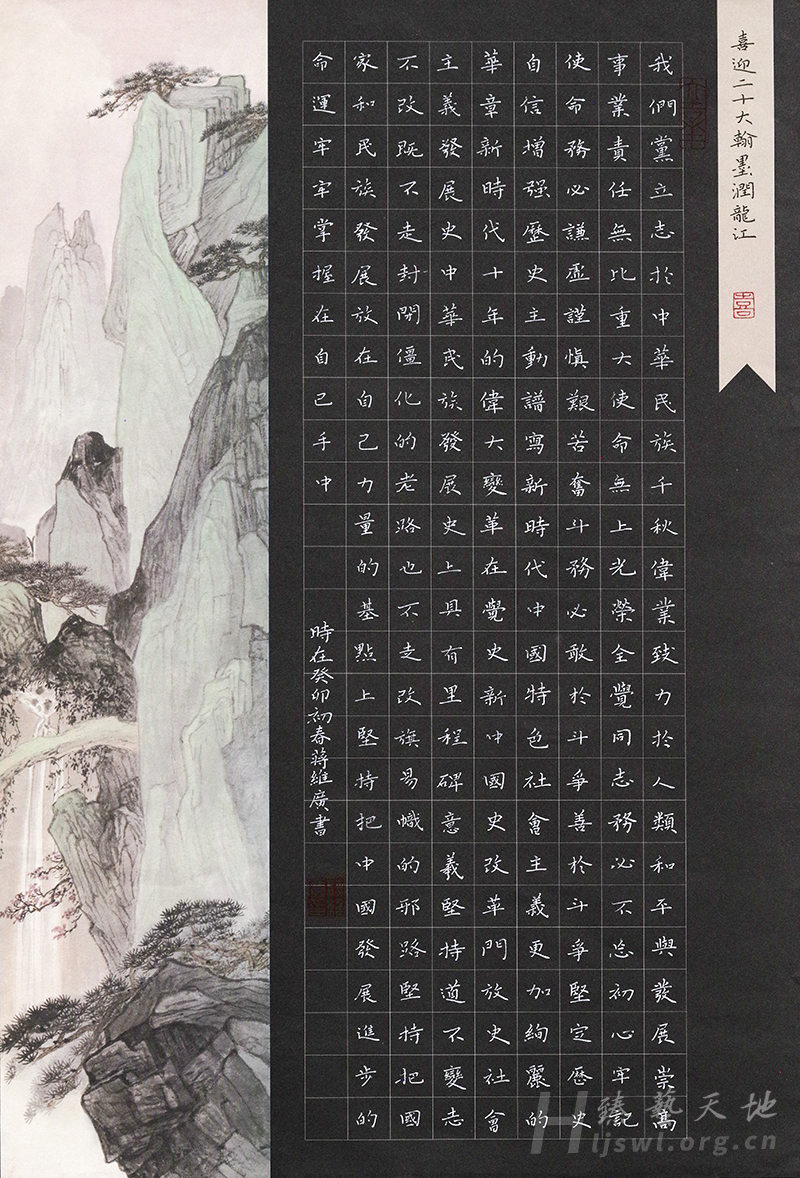 喜迎二十大翰墨潤龍江
我們黨立志於中華民族千秋偉業致力於人類和平與發展崇高
事業責任無比重大使命無上光榮全覺同志務必不忘初心牢記
使命務必謙虛謹慎艱苦奮斗務必敢於斗爭善於斗爭堅定歷史
自信增强歷史主動譜寫新時代中國特色社會主義更加絢麗的
華章新時代十年的偉大變革在覺史新中國史改革門放史社會
主義發展史中華民族發展史上具有里程碑意義堅持道不變志
不改既不走封閉僵化的老路也不走改旗易幟的邪路堅持把國
家和民族發展放在自己力量的基點上堅持把中國發展進步的
命運牢牢掌握在自己手中
時在癸卯初春蔣維廣書
臻藝天地
Hljswl.org.cn